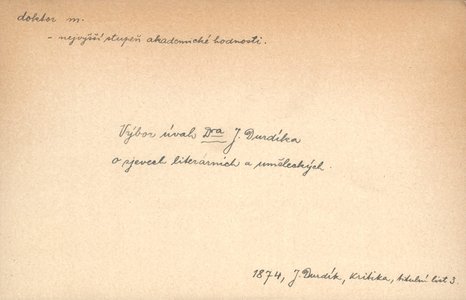 doktor m.
- nejvyšší stupeň akademické hodnosti.
Výbor úvah Dra J. Durdíka
o zjevech literárních a uměleckých.
1874, J. Durdík, Kritika, titulní list 3.